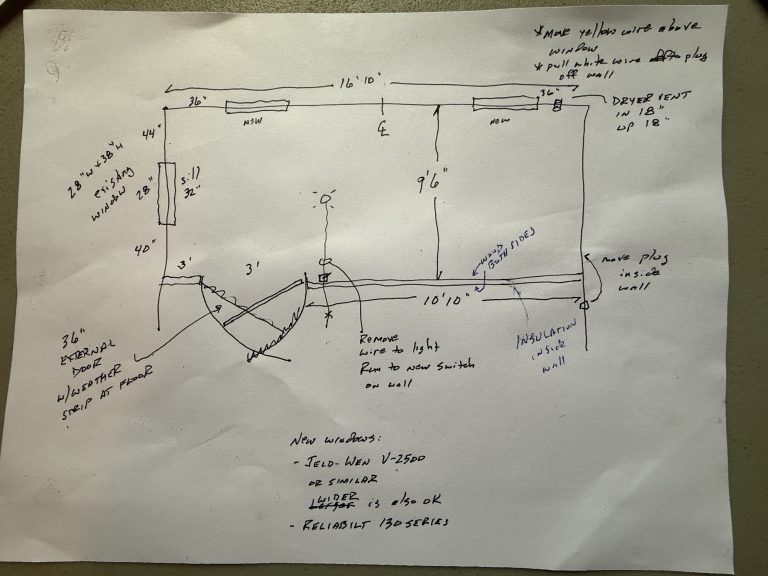 * MOVE yellow wire above
window
* pull white wire plug
off wall
16'10"
36"
NEW
℄
NEW
36"
DRYER VENT
IN 18"
UP 18"
44"
28"W x 38"H
existing
window
28"
sill
32"
40"
9'6"
3'
3'
WOOD
BOTH SIDES
10'10"
move plug
inside
wall
36"
EXTERNAL
DOOR
W/WEATHER
STRIP AT FLOOR
REMOVE
wire to light
Run to new switch
on wall
INSULATION
inside
wall
New windows:
- JELD-WEN V-2500
OR SIMILAR
WIDER
Larger is also OK
- RELIABILT 130 SERIES